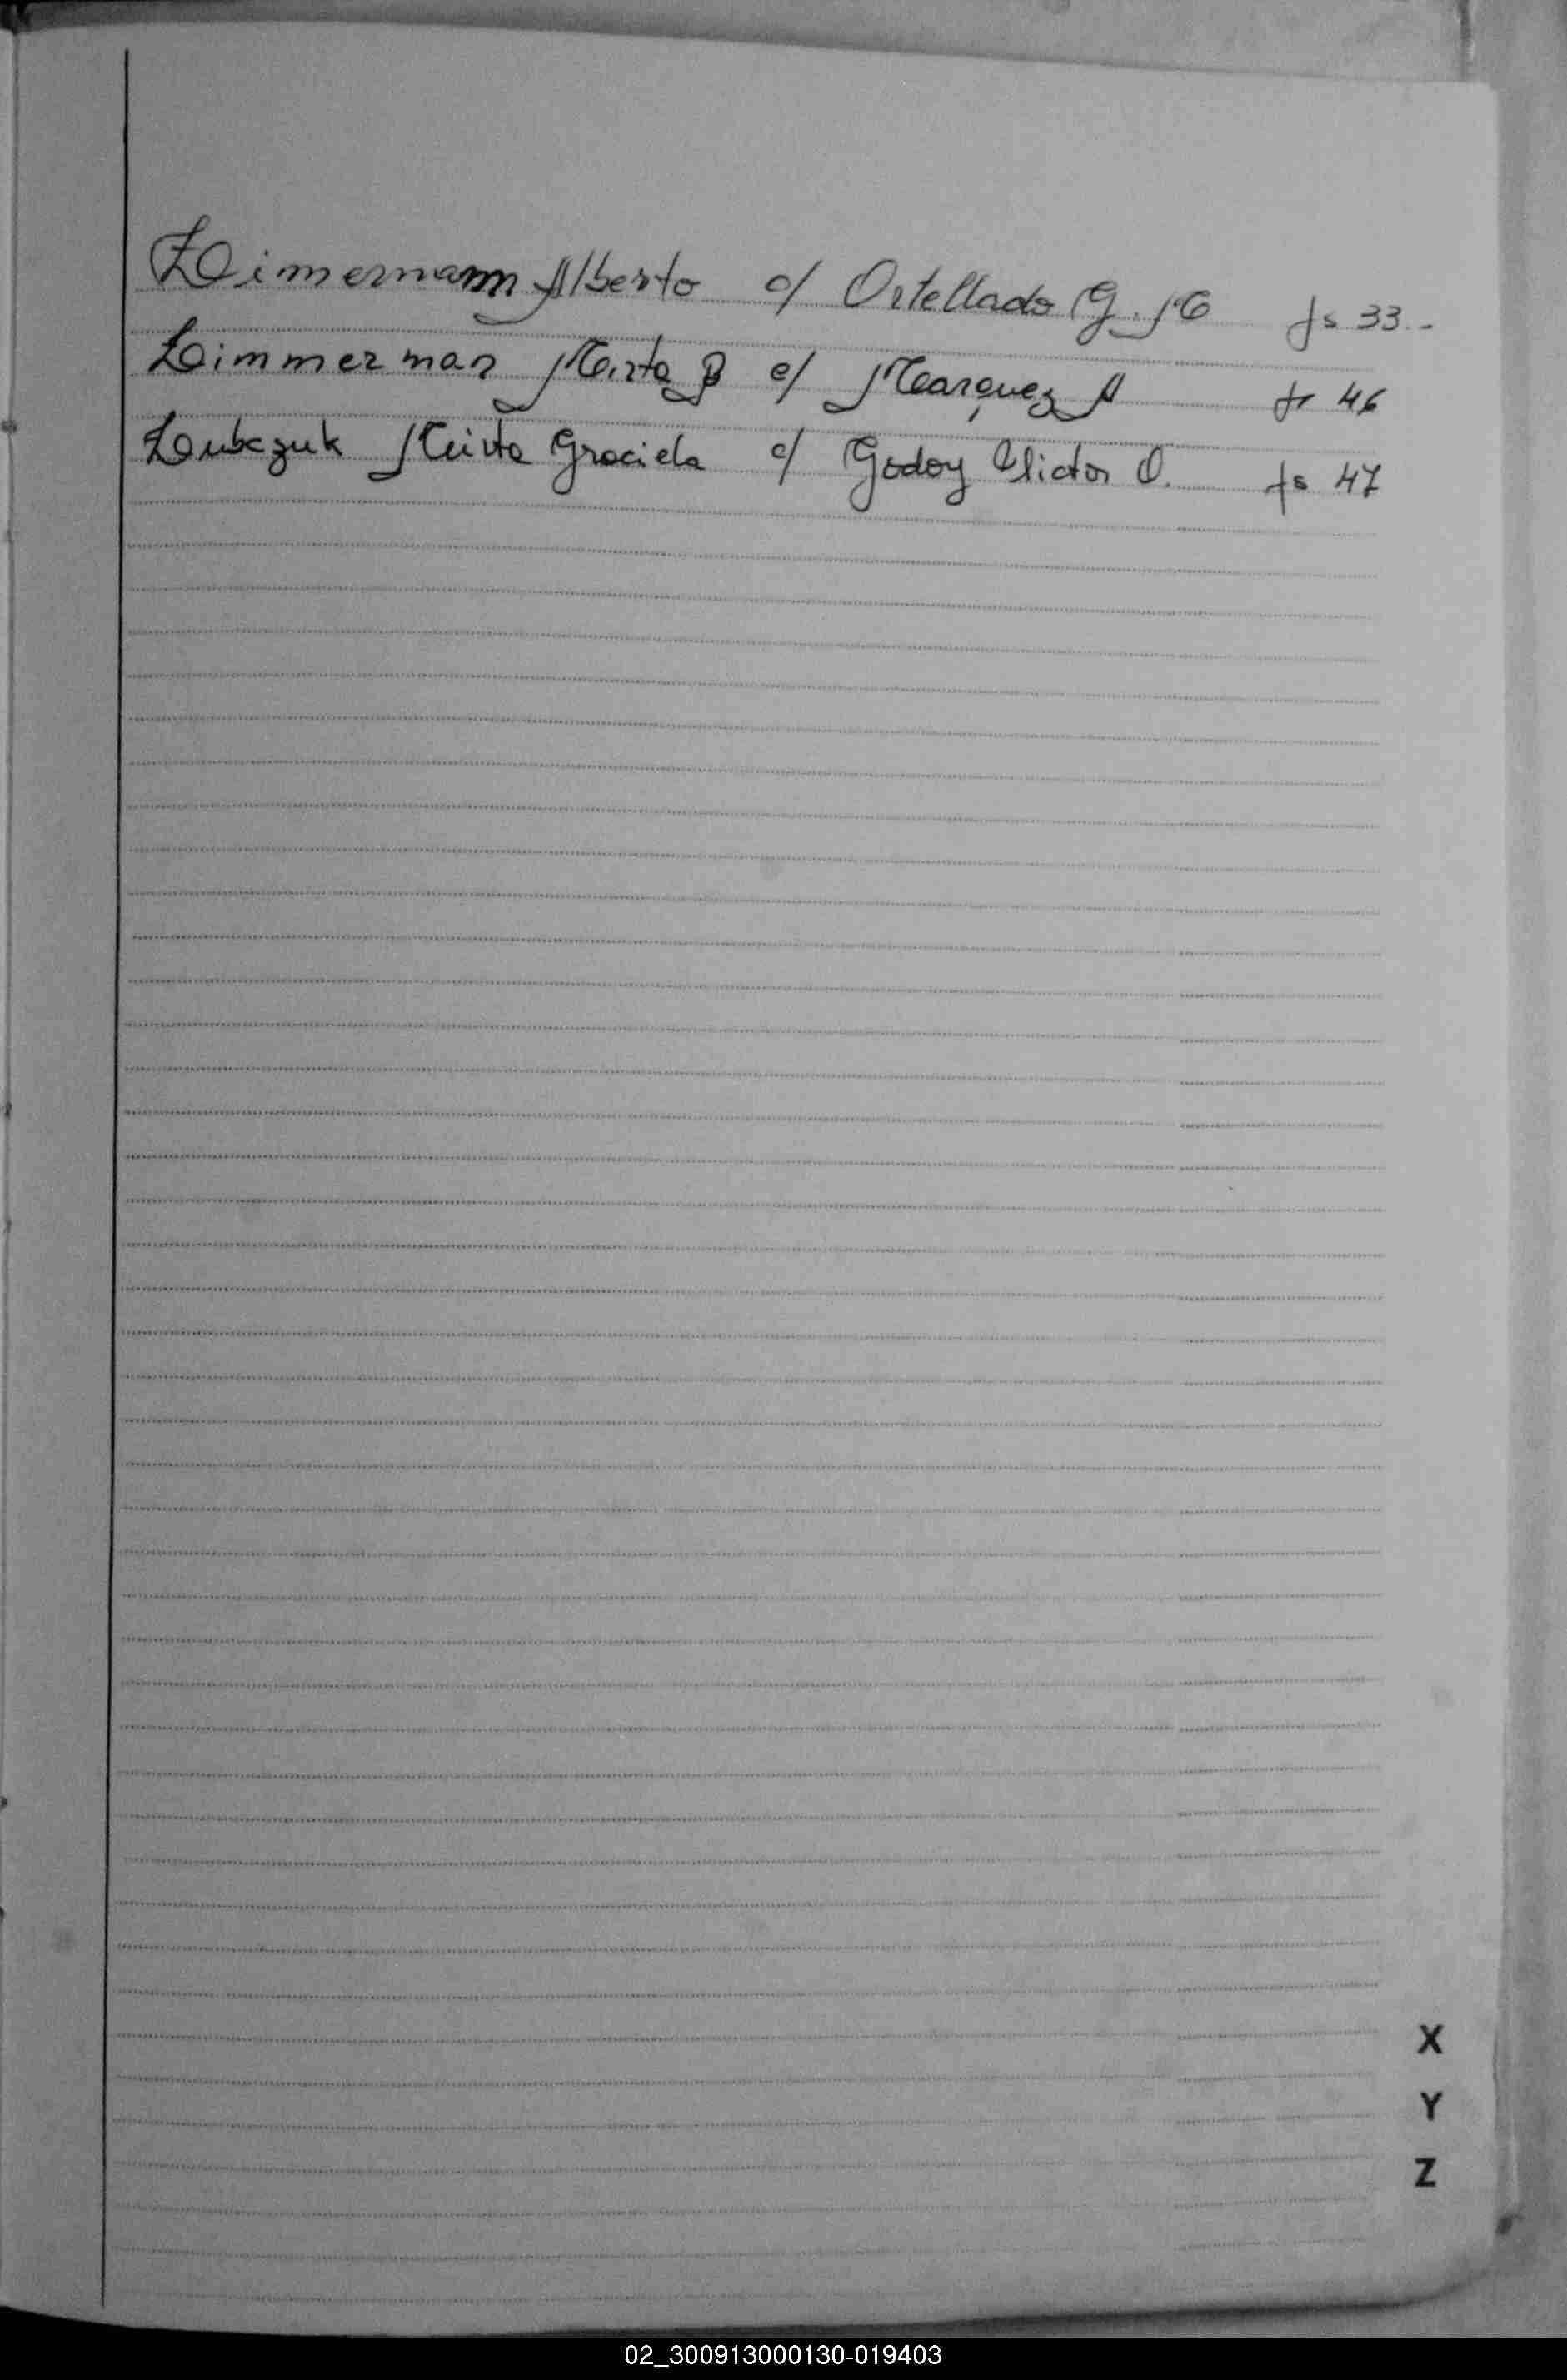 Zimermann Alberto c/ Ortellado G. M fs 33.-
Zimmerman Mirta B c/ Marquez A fs 46
Zubczuk Mirta Graciela c/ Godoy Victor O. fs 47
X
Y
Z
02_300913000130-019403